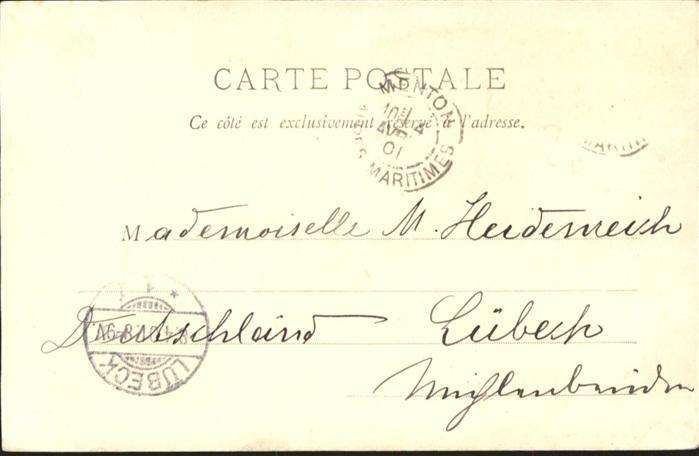 CARTE POSTALE
Ce côté est exclusivement réservé à l'adresse.
MENTON
01
MARITIMES
Mademoiselle M. Heidenreich
Deutschland Lübeck
LÜBECK